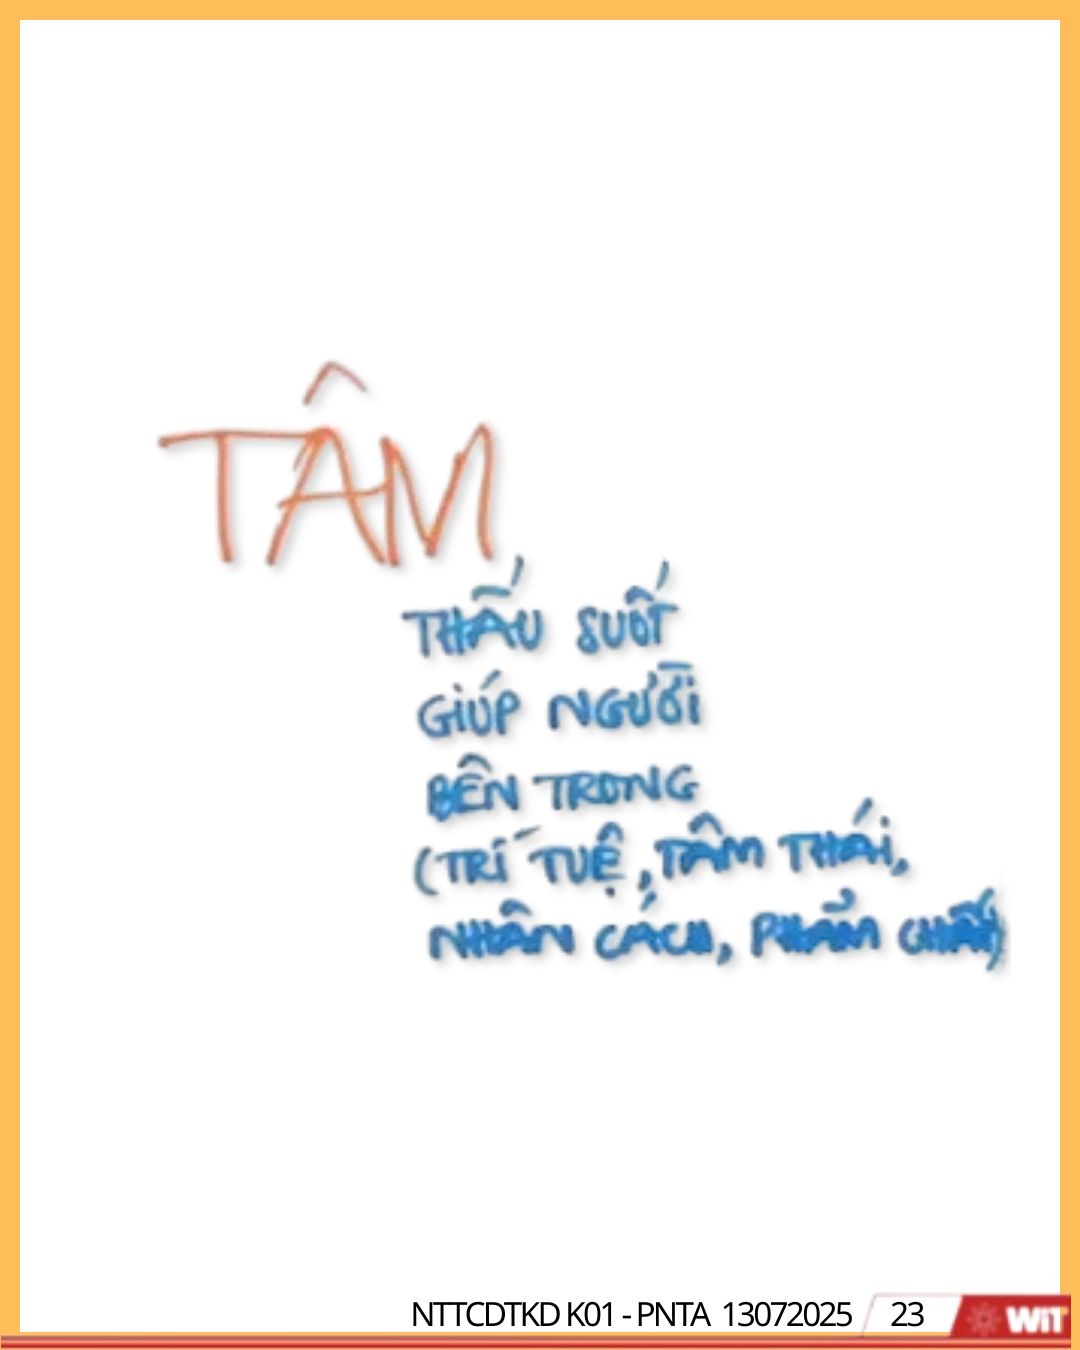 TÂM
THẤU SUỐT
GIÚP NGƯỜI
BÊN TRONG
(TRÍ TUỆ, TÂM THÁI,
NHÂN CÁCH, PHẨM CHẤT)
NTTCDTKD K01 - PNTA 13072025 23 WiT